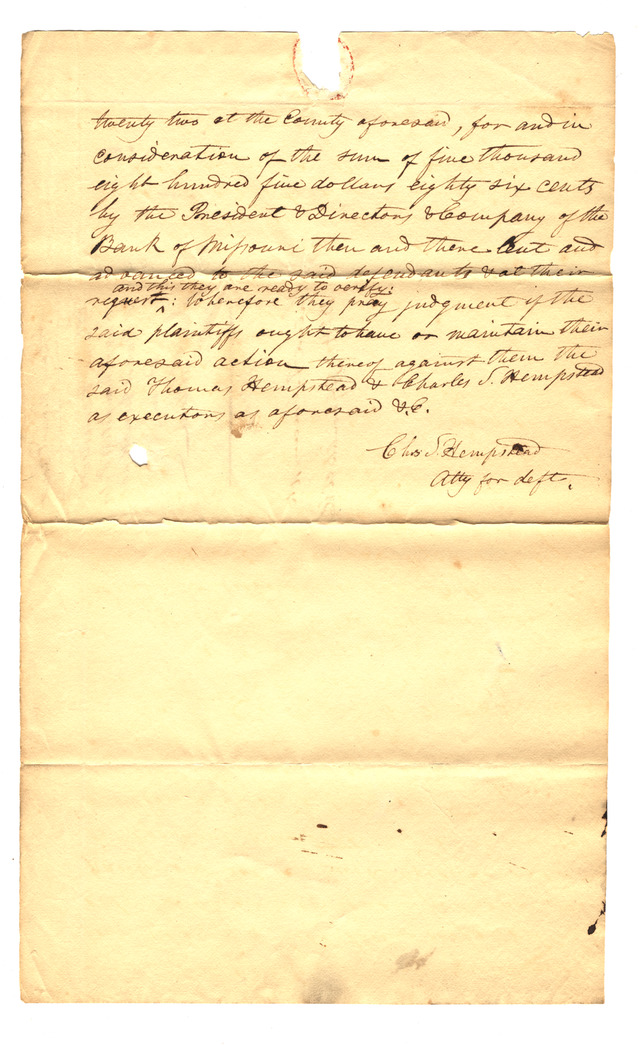 twenty two at the County aforesaid, for and in
consideration of the sum of five thousand
eight hundred five dollars eighty six cents
by the President & Directors & Company of the
Bank of Missouri then and there lent and
advanced to the said defendants & at their
and this they are ready to verify:
request: ^ Wherefore they pray judgment if the
said plaintiffs ought to have or maintain their
aforesaid action thereof against them the
said Thomas Hempstead & Charles S. Hempstead
as executors as aforesaid &C.
Chs S. Hempstead
Atty for deft.